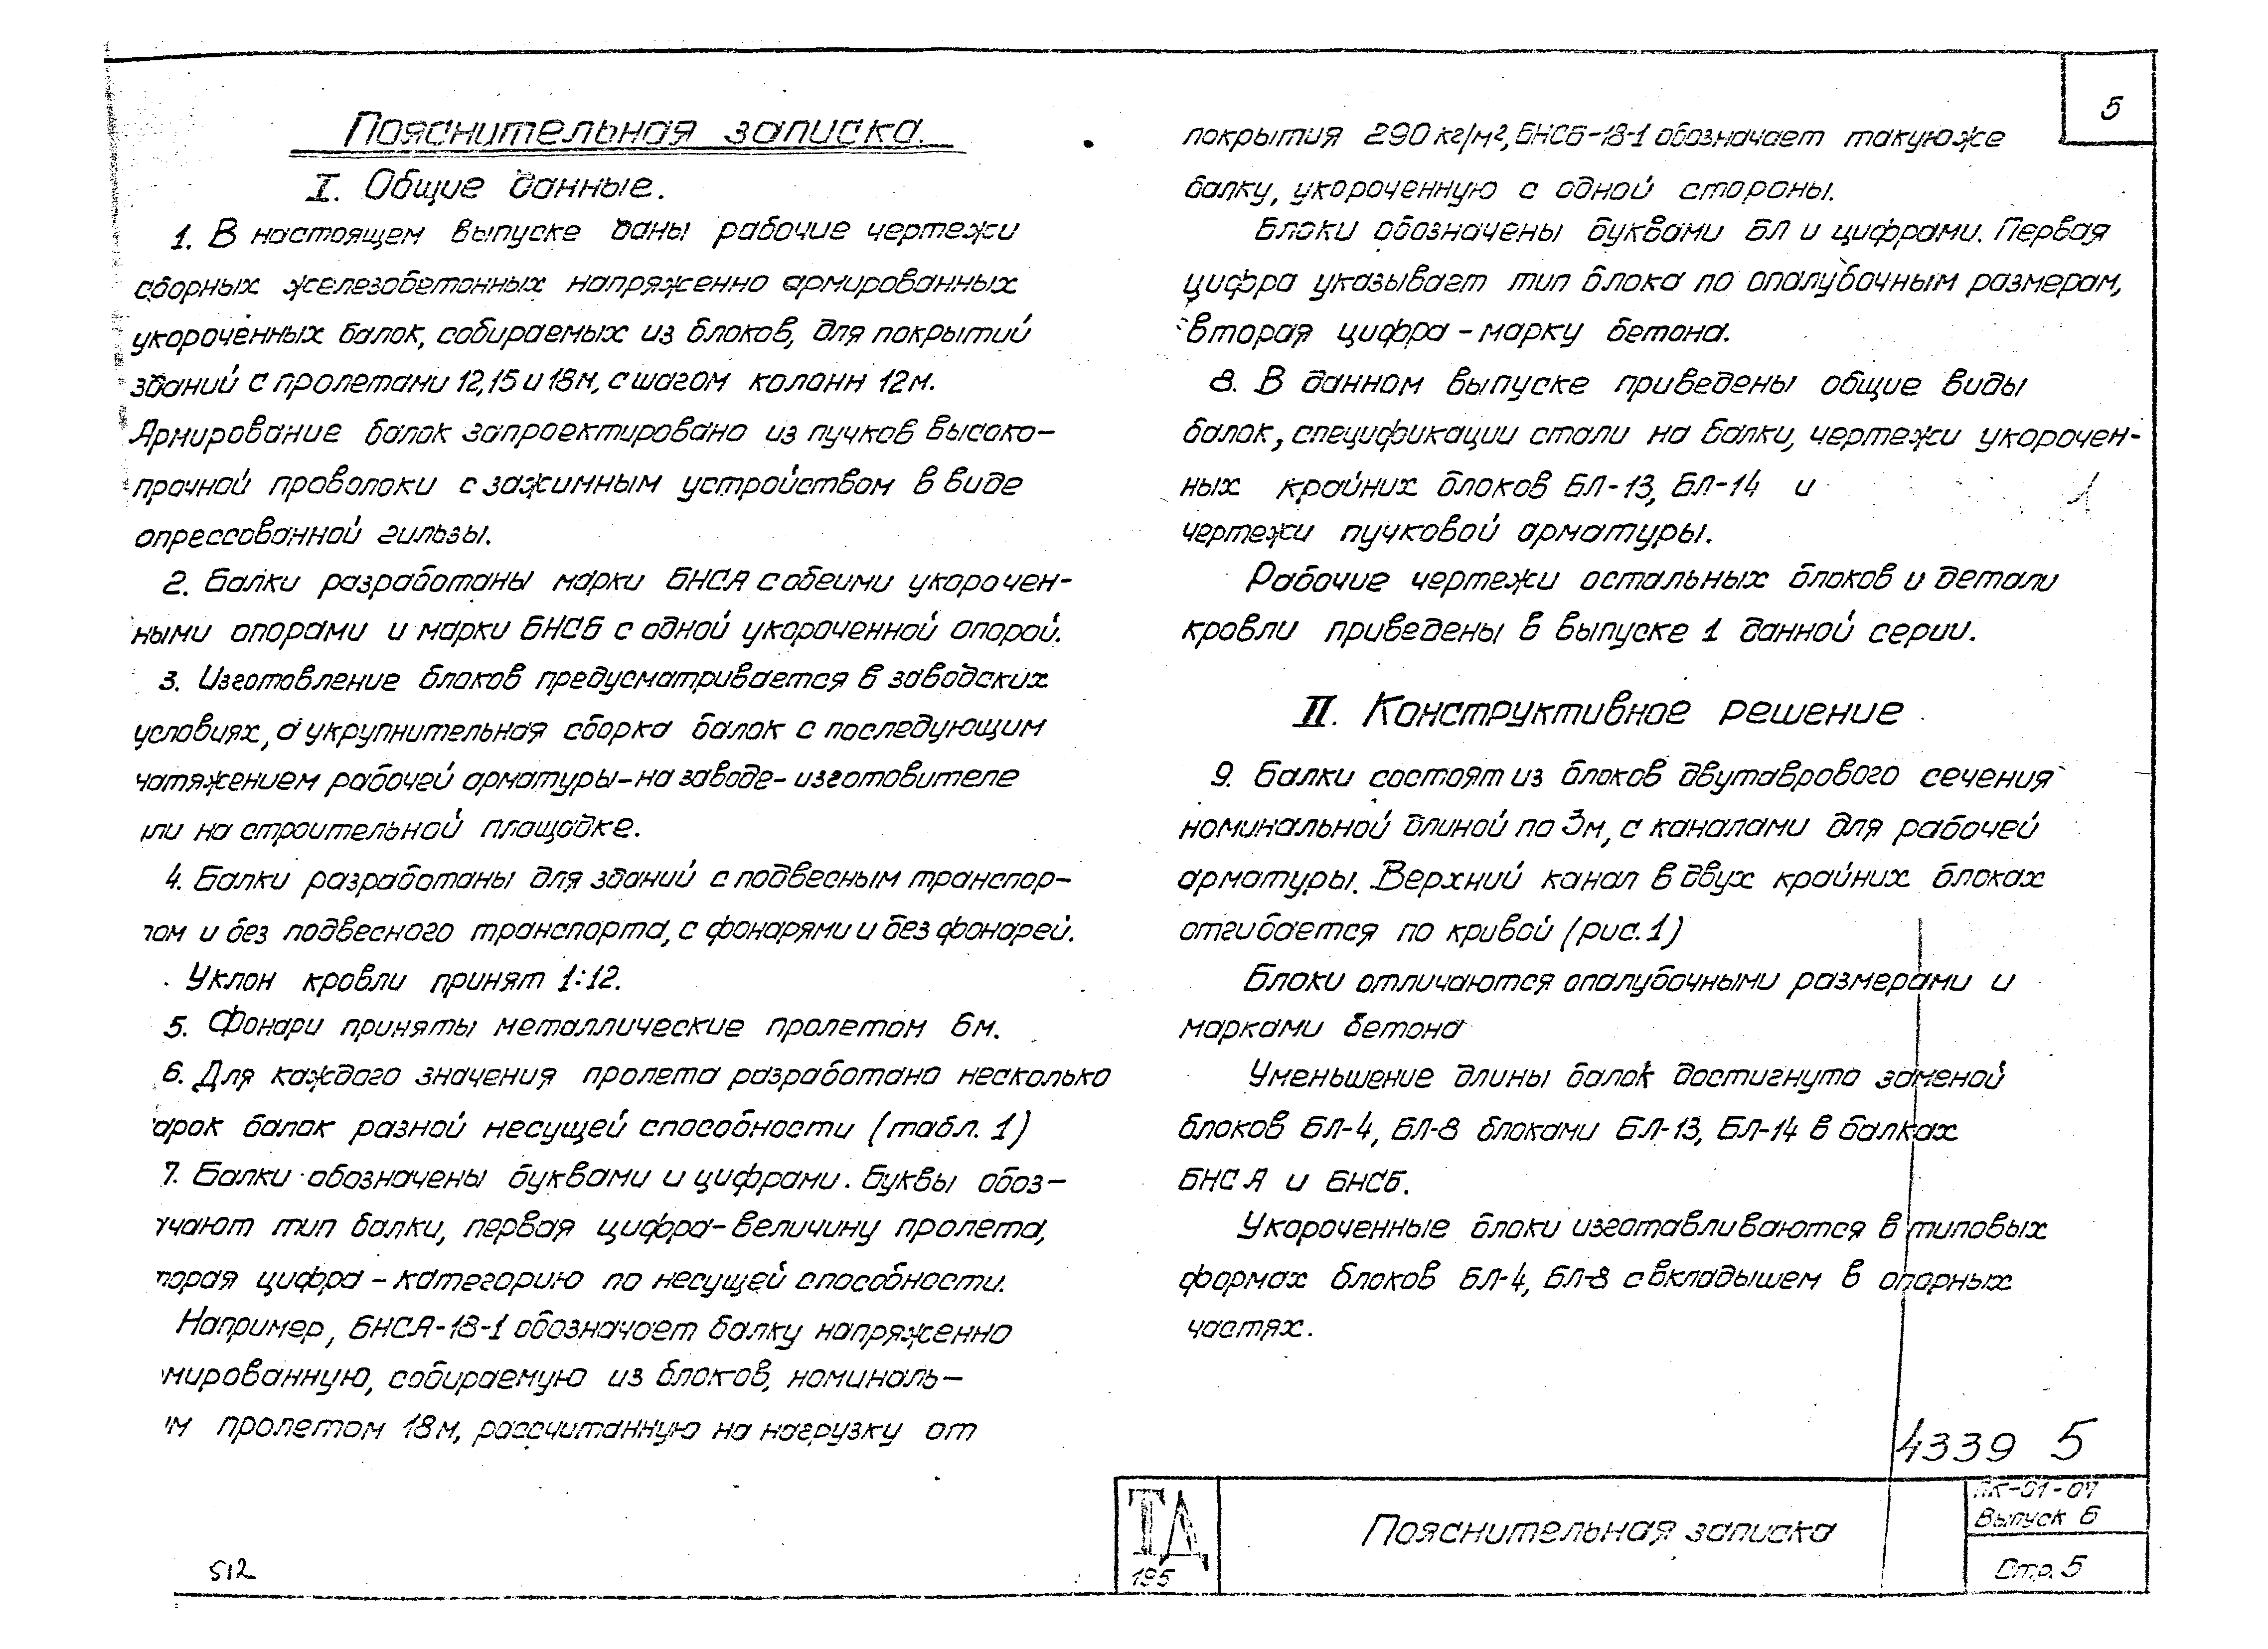 Пояснительная записка.
I. Общие данные.
1. В настоящем выпуске даны рабочие чертежи
сборных железобетонных напряженно армированных
укороченных балок, собираемых из блоков, для покрытий
зданий с пролетами 12,15 и 18м, с шагом колонн 12м.
Армирование балок запроектировано из пучков высоко-
прочной проволоки с зажимным устройством в виде
опрессованной гильзы.
2. Балки разработаны марки БНСА с обеими укорочен-
ными опорами и марки БНСБ с одной укороченной опорой.
3. Изготовление блоков предусматривается в заводских
условиях, а укрупнительная сборка балок с последующим
натяжением рабочей арматуры-на заводе-изготовителе
или на строительной площадке.
4. Балки разработаны для зданий с подвесным транспор-
том и без подвесного транспорта, с фонарями и без фонарей.
Уклон кровли принят 1:12.
5. Фонари приняты металлические пролетом 6м.
6. Для каждого значения пролета разработано несколько
арок балок разной несущей способности (табл. 1)
7. Балки обозначены буквами и цифрами. Буквы обоз-
чают тип балки, первая цифра-величину пролета,
торая цифра-категорию по несущей способности.
Например, БНСА-18-1 обозначает балку напряженно
мированную, собираемую из блоков, номиналь-
ым пролетом 18м, рассчитанную на нагрузку от
512
5
покрытия 290 кг/м², БНСБ-18-1 обозначает такую же
балку, укороченную с одной стороны.
Блоки обозначены буквами БЛ и цифрами. Первая
цифра указывает тип блока по опалубочным размерам,
вторая цифра - марку бетона.
8. В данном выпуске приведены общие виды
балок, спецификации стали на балки, чертежи укорочен-
ных крайних блоков БЛ-13, БЛ-14 и
чертежи пучковой арматуры.
Рабочие чертежи остальных блоков и детали
кровли приведены в выпуске 1 данной серии.
II. Конструктивное решение
9. Балки состоят из блоков двутаврового сечения
номинальной длиной по 3м, с каналами для рабочей
арматуры. Верхний канал в двух крайних блоках
отгибается по кривой (рис. 1)
Блоки отличаются опалубочными размерами и
марками бетона
Уменьшение длины балок достигнуто заменой
блоков БЛ-4, БЛ-8 блоками БЛ-13, БЛ-14 в балках
БНСА и БНСБ.
Укороченные блоки изготавливаются в типовых
формах блоков БЛ-4, БЛ-8 с вкладышем в опорных
частях.
4339 5
ТД
195
Пояснительная записка
ПК-01-07
Выпуск 6
Стр. 5